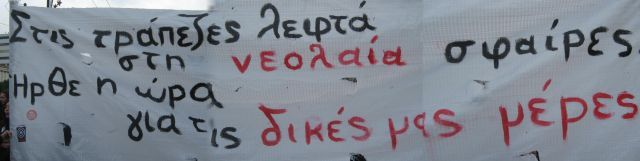 Στις τράπεζες λεφτά
στη νεολαία σφαίρες
Ηρθε η ώρα
για τις δικές μας μέρες